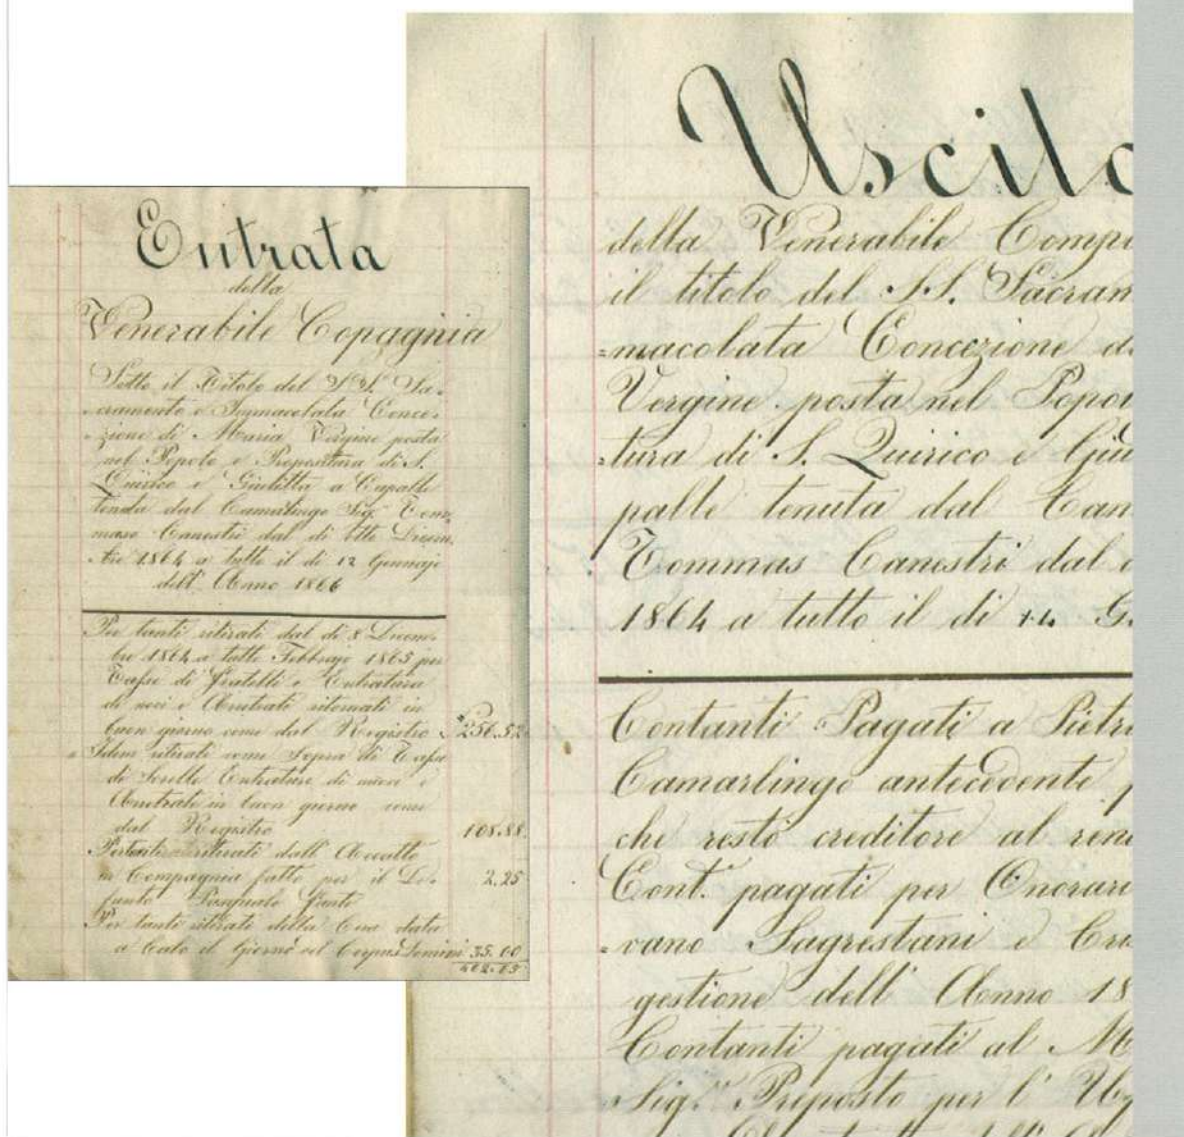 Entrata
della
Venerabile Copagnia
Sotto il Titolo del S.S. Sa-
-cramento e Immacolata Conce-
-zione di Maria Vergine posta
nel Popolo e Prepositura di S.
Quirico e Giulitta a Capalle
tenuta dal Camarlingo Sig.r Tom-
maso Canestri dal di Otto Dicem-
bre 1864 a tutto il di 12 Gennajo
dell' Anno 1866
Per tanti ritirati dal di 8 Dicem-
bre 1864 a tutto Febbrajo 1865 per
Tasse di Fratelli e Entratura
di novi e Arretrati ritornati in
buon giorno come dal Registro 256.52
Idem ritirati come Sopra di Tasse
di Sorelle Entrature di nuovi e
Arretrati in buon giorno come
dal Registro 108.88
Per tanti ritirati dall' Accatto
in Compagnia fatto per il De-
funto Pasquale 2.25
Per tanti ritirati della Cena data
a Calo il Giorno del Corpus Domini 35.00
402.65
Uscita
della Venerabile Comp
il titolo del S.S. Sacram
-macolata Concezione d
Vergine posta nel Popo
-tura di S. Quirico e Giu
palle tenuta dal Cam
Tommas Canestri dal
1864 a tutto il di 14 G
Contanti Pagati a Pietr
Camarlingo antecedente p
che restò creditore al ren
Cont. pagati per Onorar
-vano Sagrestani e Cra
gestione dell' Anno 18
Contanti pagati al M
Sig.r Preposto per l' U